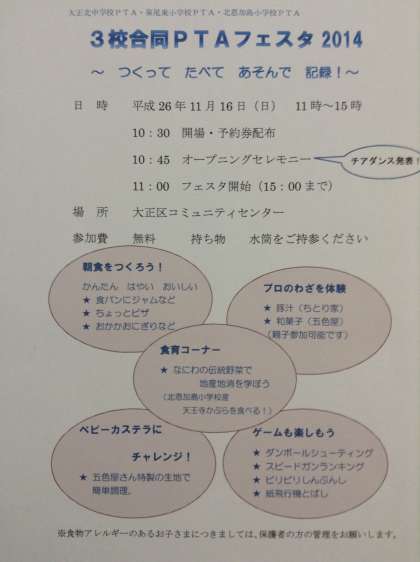 大正北中学校PTA・泉尾東小学校PTA・北恩加島小学校PTA
3校合同PTAフェスタ 2014
～ つくって たべて あそんで 記録！～
日 時 平成26年11月16日（日） 11時～15時
10：30 開場・予約券配布
10：45 オープニングセレモニー
チアダンス発表！
11：00 フェスタ開始（15：00まで）
場 所 大正区コミュニティセンター
参加費 無料 持ち物 水筒をご持参ください
朝食をつくろう！
かんたん はやい おいしい
★ 食パンにジャムなど
★ ちょっとピザ
★ おかかおにぎりなど
プロのわざを体験
★ 豚汁（ちとり家）
★ 和菓子（五色屋）
（親子参加可能です）
食育コーナー
★ なにわの伝統野菜で
地産地消を学ぼう
（北恩加島小学校産
天王寺かぶらを食べる！）
ベビーカステラに
チャレンジ！
★ 五色屋さん特製の生地で
簡単調理。
ゲームも楽しもう
★ ダンボールシューティング
★ スピードガンランキング
★ ビリビリしんぶんし
★ 紙飛行機とばし
※食物アレルギーのあるお子さまにつきましては、保護者の方の管理をお願いします。